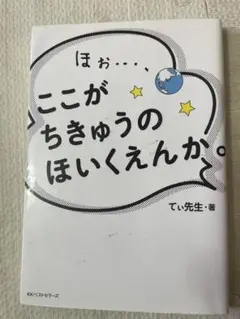 ほぉ…、
ここが
ちきゅうの
ほいくえんか。
てぃ先生・著
KKベストセラーズ